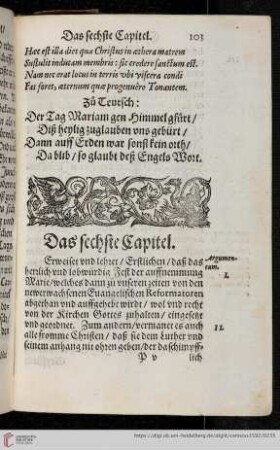 Das sechste Capitel.
103
Hæc est illa dies qua Christus in æthera matrem
Sustulit inducam membris: sic credere sanctum est.
Nam nec erat locus in terris vbi viscera condi
Fas foret, æternum quæ progenuêre Tonantem.
Zů Teutsch:
Der Tag Mariam gen Himmel gfürt/
Diß heylig zuglauben vns gebürt/
Dann auff Erden war sonst kein orth/
Da blib/ so glaubt deß Engels Wort.
Das sechste Capitel.
Erweiset vnd lehret/ Erstlichen/ daß das
herrlich vnd lobwürdig Fest der auffnemmung
Marie/welches dann zu vnseren zeiten von den
newerwachsenen Euangelischen Reformatoren
abgethan vnd auffgehebt wirdt/ wol vnd recht
von der Kirchen Gottes zuhalten/ eingesetzt
vnd geordnet. Zum andern/vermanet es auch
alle fromme Christen/ daß sie dem Luther vnd
seinem anhang nit ohren geben/der da schimpff-
P v
lich
Argumen-
tum.
I.
II.